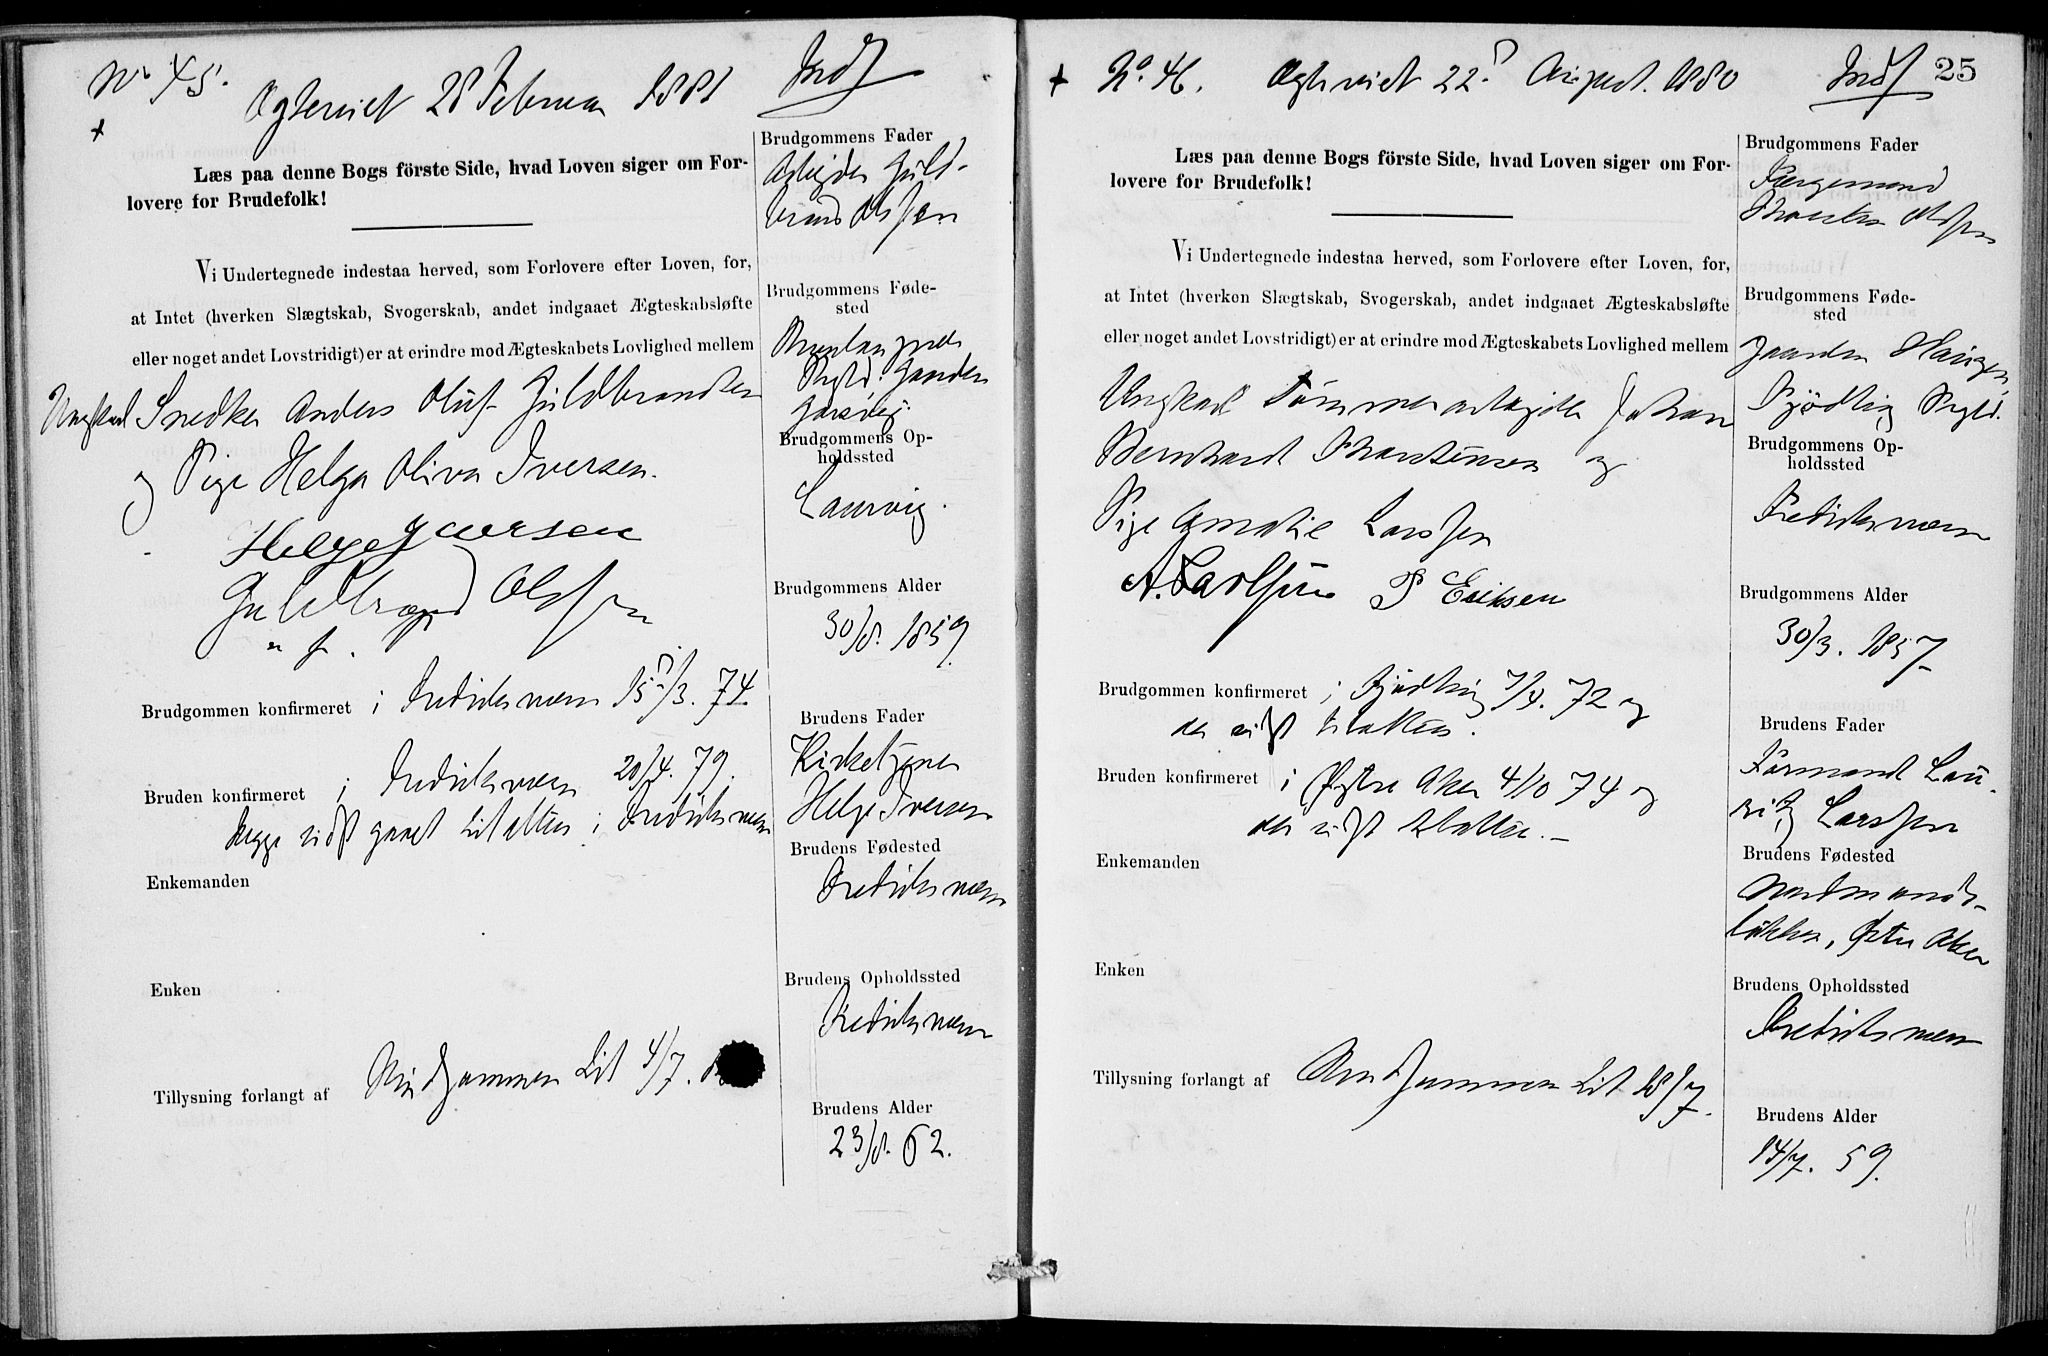 No 45.
Ægteviet 28 Februar 1881
Indf
Læs paa denne Bogs förste Side, hvad Loven siger om For-
lovere for Brudefolk!
Vi Undertegnede indestaa herved, som Forlovere efter Loven, for,
at Intet (hverken Slægtskab, Svogerskab, andet indgaaet Ægteskabsløfte
eller noget andet Lovstridigt) er at erindre mod Ægteskabets Lovlighed mellem
Ungkarl Snedker Anders Oluf Guldbrandsen
og Pige Helga Oliva Iversen.
Helge Iversen
Guldbrand Olssen
Brudgommen konfirmeret i Fredriksværn 15/3. 74.
Bruden konfirmeret i Fredriksværn 20/4. 79.
begge sidst gaaet til alters i Fredriksværn
Enkemanden
Enken
Tillysning forlangt af Brudgommen Lit 4/7.
Brudgommens Fader
Arbeider Guld-
brand Olssen
Brudgommens Føde-
sted
Gaarden
Brudgommens Op-
holdssted
Laurvig.
Brudgommens Alder
30/8. 1859.
Brudens Fader
Kirketjener
Helge Iversen
Brudens Fødested
Fredriksværn
Brudens Opholdssted
Fredriksværn
Brudens Alder
23/8. 62.
No. 46. Ægteviet 22. August. 1880
Indf
25
Læs paa denne Bogs förste Side, hvad Loven siger om For-
lovere for Brudefolk!
Vi Undertegnede indestaa herved, som Forlovere efter Loven, for,
at Intet (hverken Slægtskab, Svogerskab, andet indgaaet Ægteskabsløfte
eller noget andet Lovstridigt) er at erindre mod Ægteskabets Lovlighed mellem
Ungkarl Tømmerarbejder Johan
Bernhard Thorsensen og
Pige Amalie Larssen
A. Carlsen P Eriksen
Brudgommen konfirmeret i Tjødling 7/4. 72 og
der sidst til alters.
Bruden konfirmeret i Østre Aker 4/10 74 og
der sidst til alters. —
Enkemanden
Enken
Tillysning forlangt af Brudgommen Lit 18/7.
Brudgommens Fader
Færgemand
Olssen
Brudgommens Føde-
sted
Gaarden Haugen,
Tjødling Prgld.
Brudgommens Op-
holdssted
Fredriksværn
Brudgommens Alder
30/3. 1857
Brudens Fader
Formand Lau-
ritz Larssen
Brudens Fødested
Nordmands-
løkken, Østre Aker
Brudens Opholdssted
Fredriksværn
Brudens Alder
14/7. 59.